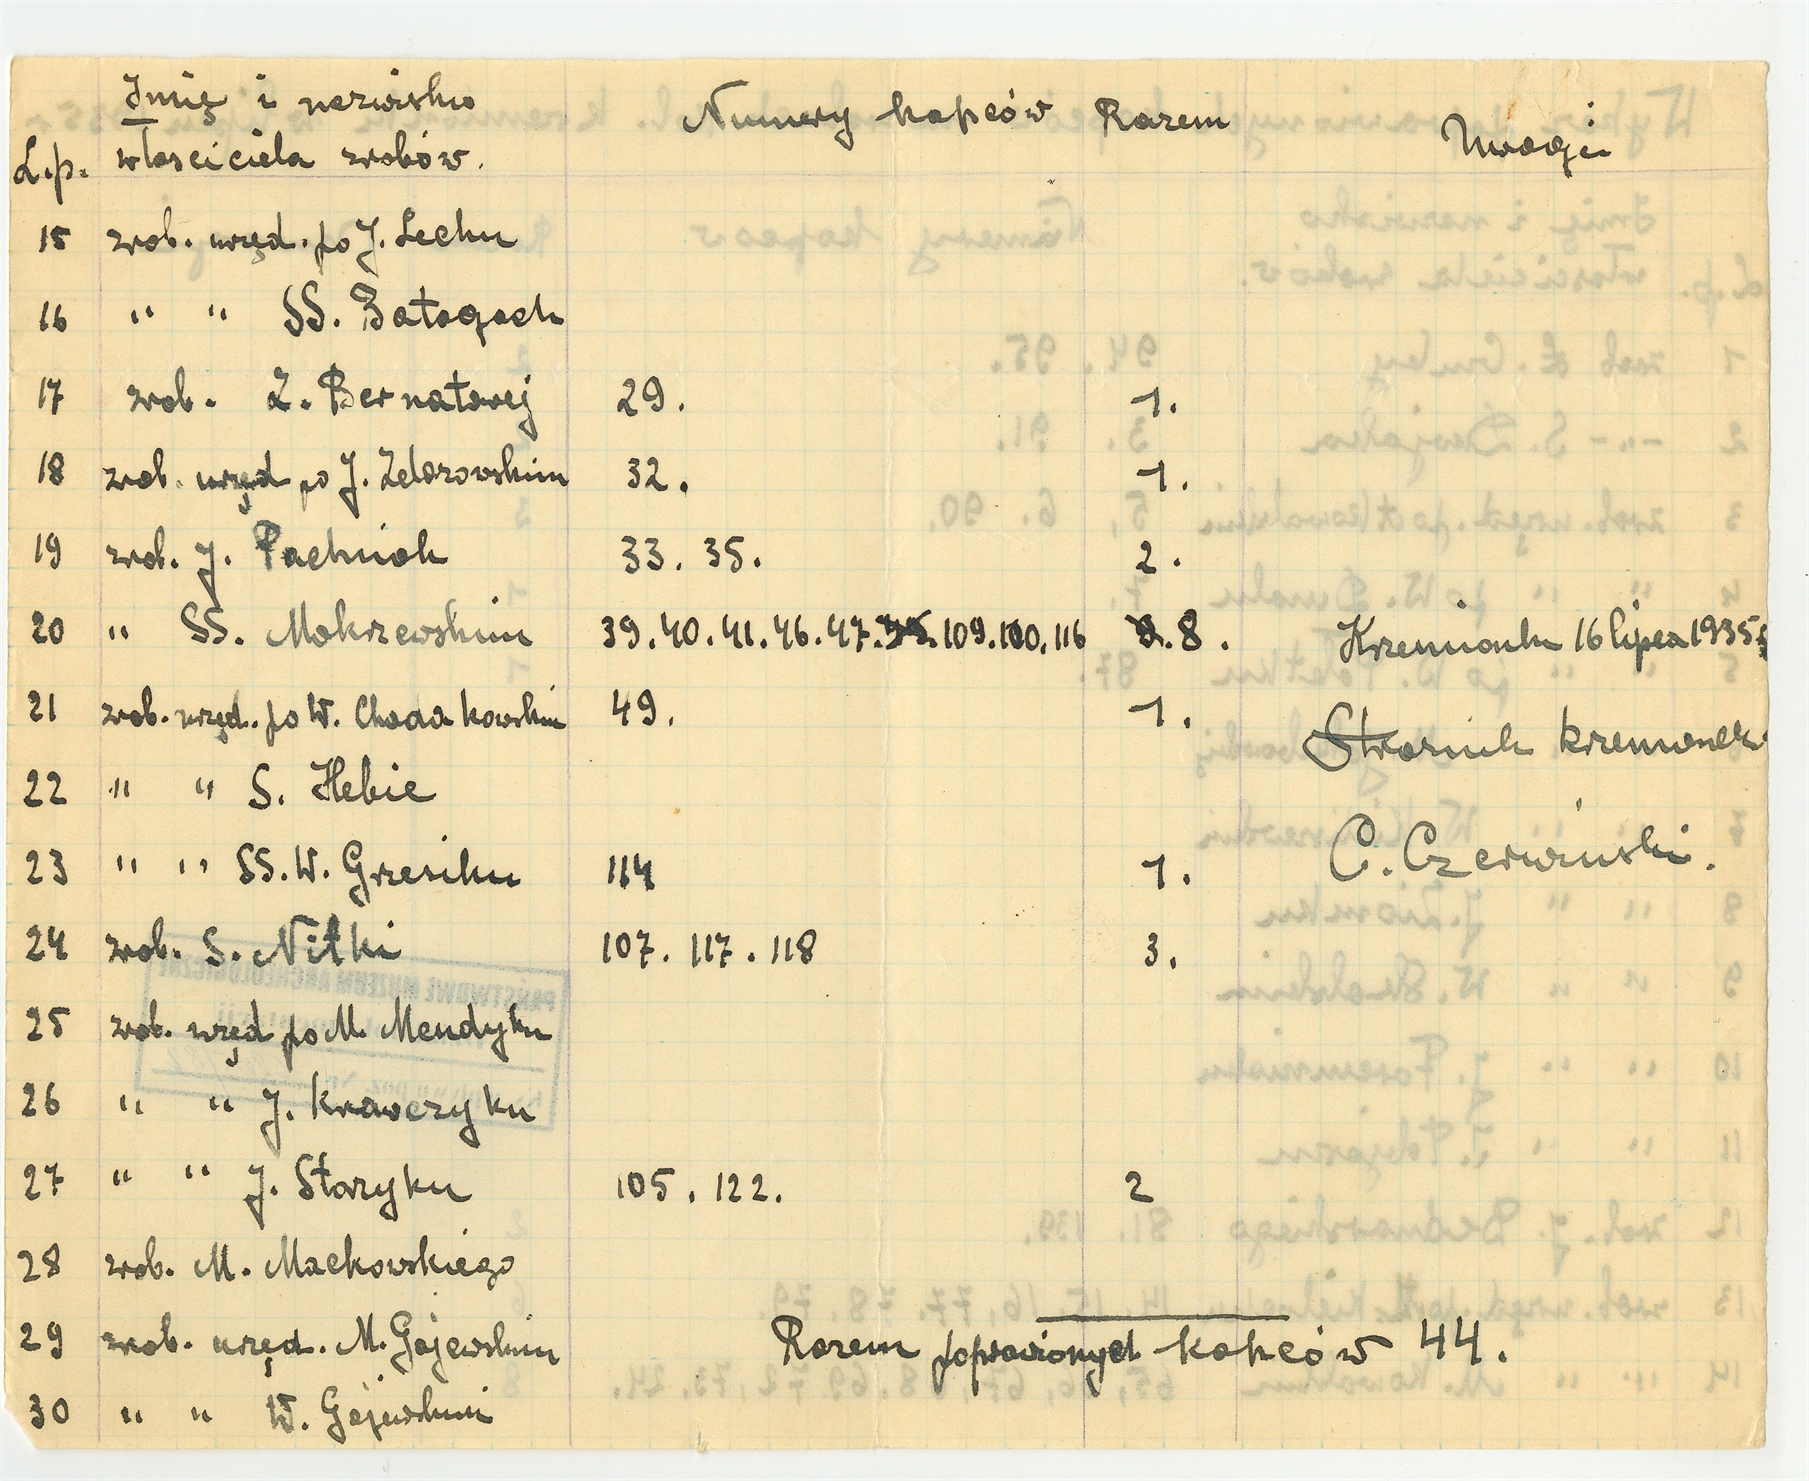 L.p. Imię i nazwisko właściciela zrobów. Numery kopców Razem Uwagi
15 zrob. urzęd. po J. Lechu
16 " " SS. Batogach
17 zrob. Z. Bernatowej 29. 1.
18 zrob. urzęd po J. Zdorowskim 32. 1.
19 zrob. J. Pachniak 33. 35. 2.
20 " SS. Mokrzewskim 39. 40. 41. 46. 47. 109. 100. 116 8. Krzemionki 16 lipca 1935
21 zrob. urzęd. po W. Chodakowskim 49. 1. Strażnik krzemionek
22 " " S. Hebie
23 " " SS. W. Grzesiku 114 1. C. Czerwiński.
24 zrob. S. Nitki 107. 117. 118 3.
25 zrob. urzęd po M. Mendyku
26 " " J. Krawczyku
27 " " J. Staryku 105. 122. 2
28 zrob. M. Mackowskiego
29 zrob. urzęd. M. Gajewskim Razem poprawionych kopców 44.
30 " " W. Gajewskim